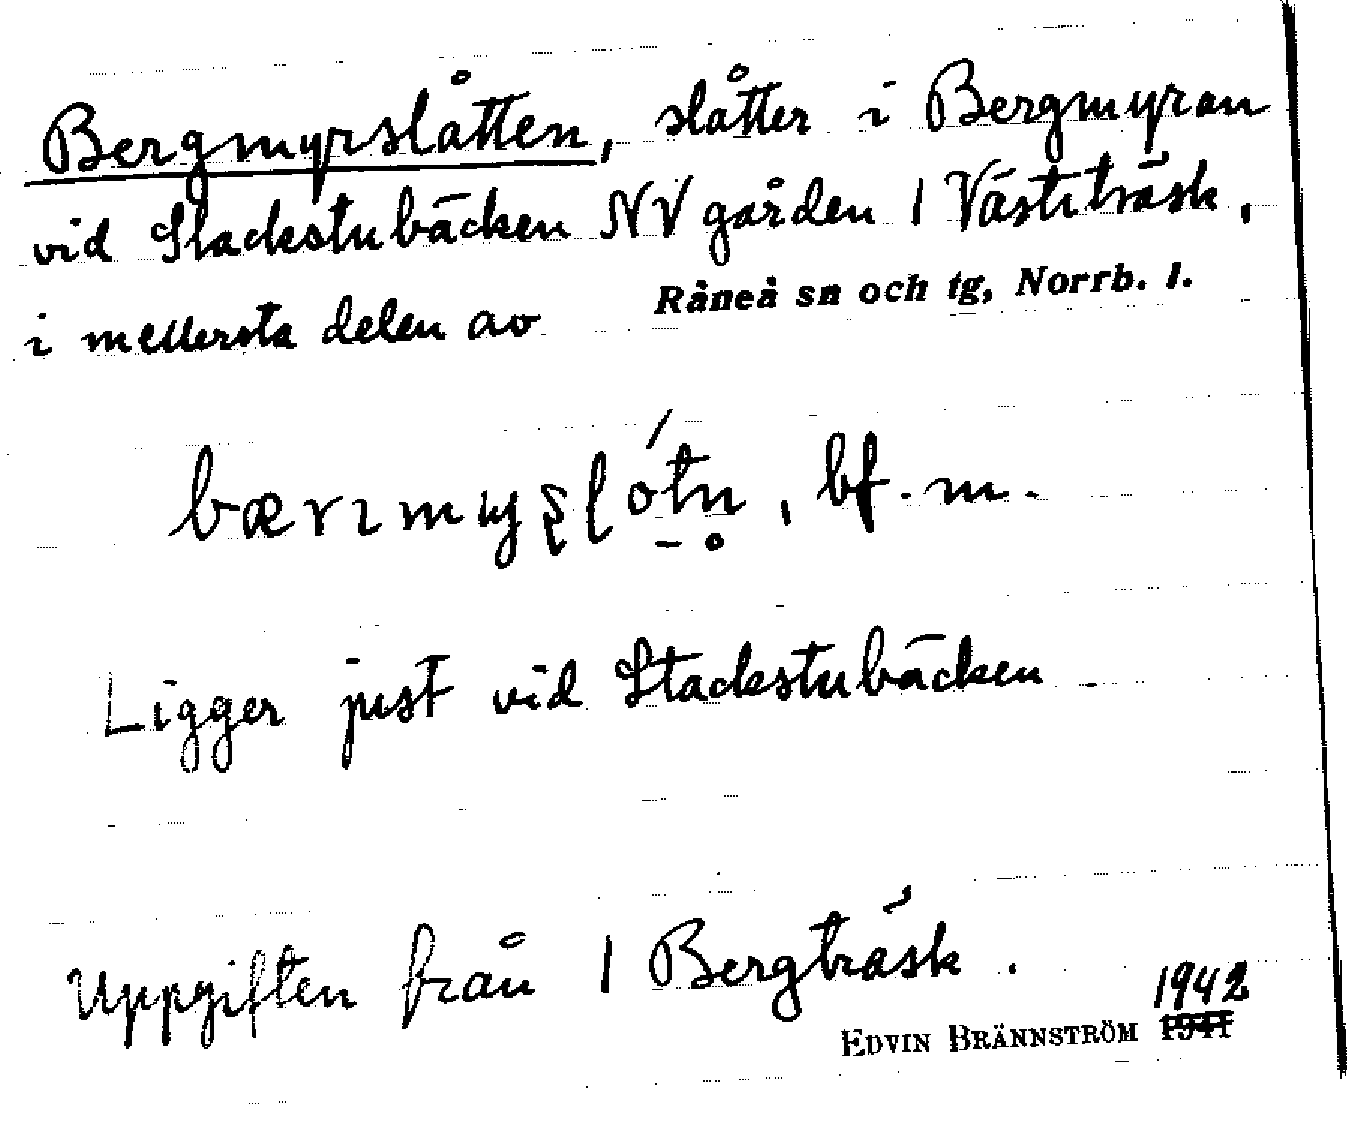 Bergmyrslåtten, slåtter i Bergmyran
vid Stackstubäcken NV gården 1 Västiträsk,
i mellersta delen av Råneå sn och tg, Norrb. l.
bf. m.
Ligger just vid Stackstubäcken
Uppgiften från 1 Bergträsk.
1942
EDVIN BRÄNNSTRÖM 1941